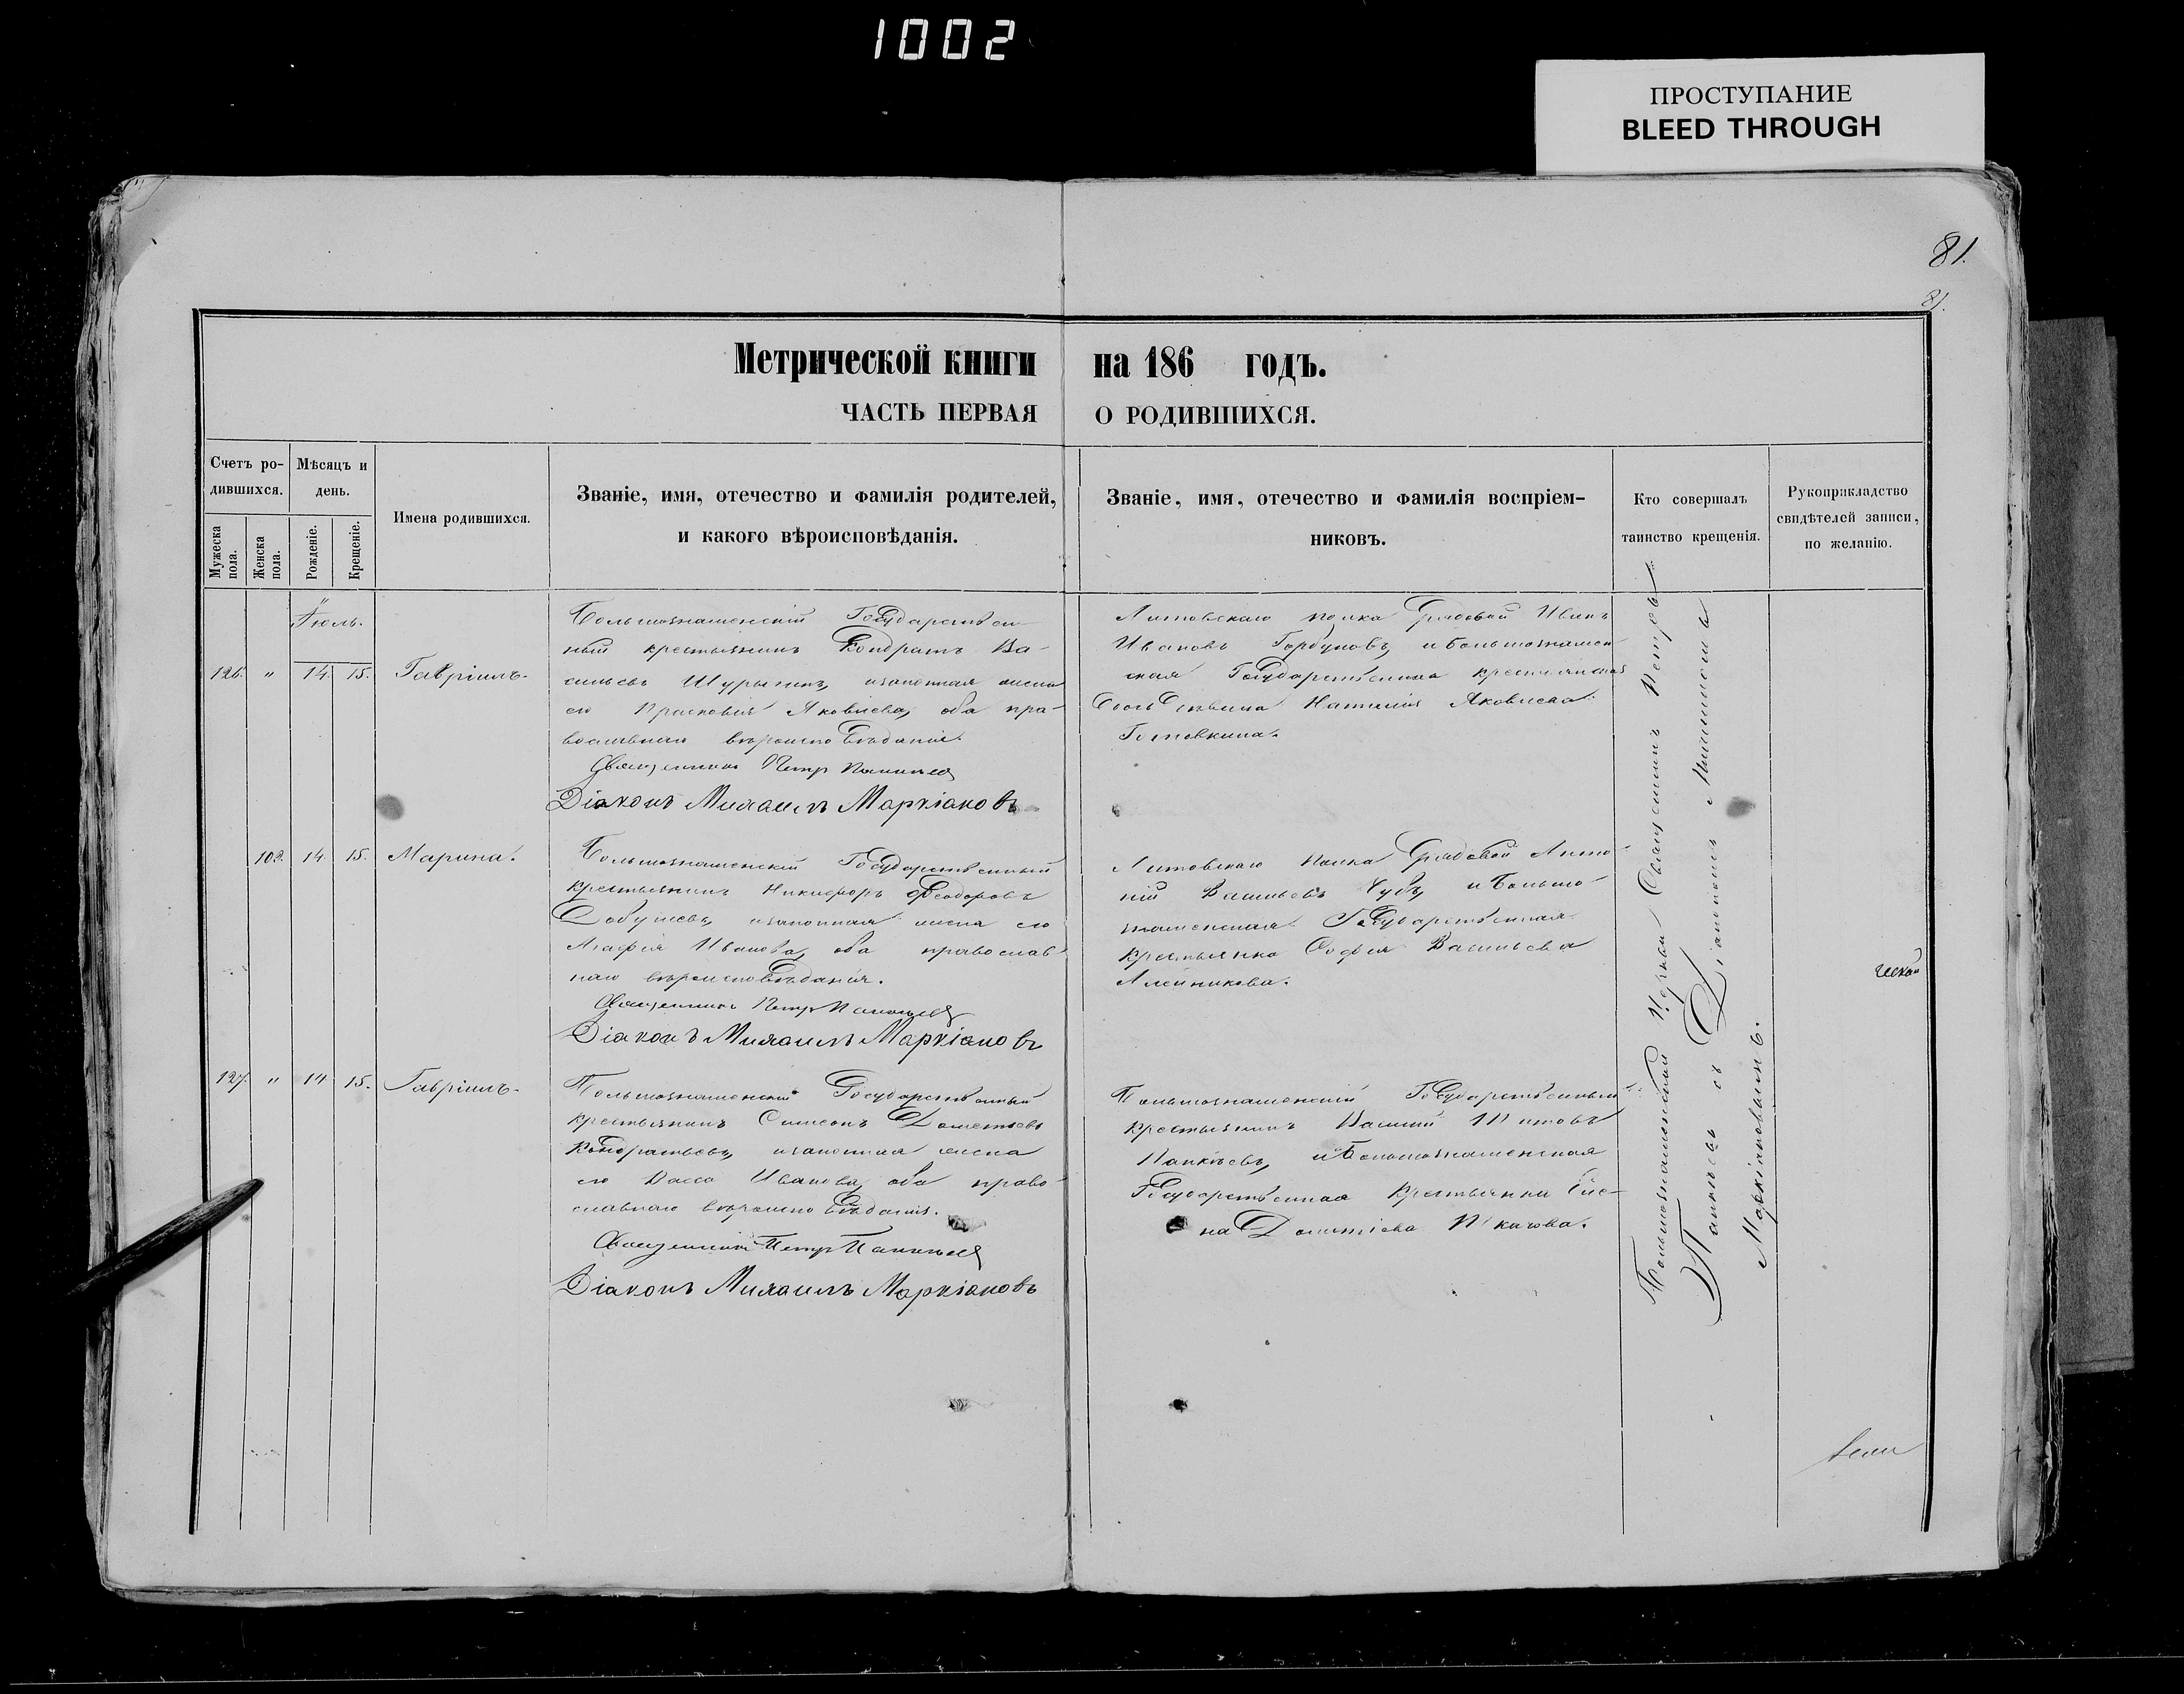 1002
ПРОСТУПАНИЕ
BLEED THROUGH
81.
81.
Метрической книги на 186 годъ.
ЧАСТЬ ПЕРВАЯ О РОДИВШИХСЯ.
Счетъ родившихся.
Мужеска пола.
Женска пола.
Мѣсяцъ и день.
Рожденіе.
Крещеніе.
Имена родившихся.
Званіе, имя, отечество и фамилія родителей,
и какого вѣроисповѣданія.
Званіе, имя, отечество и фамилія воспріем-
никовъ.
Кто совершалъ
таинство крещенія.
Рукоприкладство
свидѣтелей записи,
по желанію.
Іюль.
126. " 14. 15. Гавріилъ.
Большознаменскій Государствен-
ный крестьянинъ Кондратъ Ва-
сильевъ и законная жена
его Прасковья Яковлева, оба пра-
вославнаго вѣроисповѣданія.
Священникъ Петръ
Діаконъ Михаилъ Маркіановъ
Литовскаго полка Рядовой Иванъ
Ивановъ Горбуновъ, и Большознамен
ская Государственная крестьянская
Наталія Яковлева
102. 14. 15. Марина.
Большознаменскій Государственный
крестьянинъ Никифоръ Ѳеодоровъ
и законная жена его
Агафія Иванова, оба православ-
наго вѣроисповѣданія.
Священникъ Петръ
Діаконъ Михаилъ Маркіановъ
Литовскаго полка Рядовой Анто-
ній Васильевъ Чубъ, и Большо-
знаменская Государственная
крестьянка Софія Васильева
Алейникова.
127. " 14 15. Гавріилъ.
Большознаменскій Государственный
крестьянинъ Симеонъ Дометіевъ
Кондратьевъ, и законная жена
его Васса Иванова, оба право-
славнаго вѣроисповѣданія.
Священникъ Петръ
Діаконъ Михаилъ Маркіановъ
Большознаменскій Государственный
крестьянинъ Василій Титовъ
и Большознаменская
Государственная крестьянка Еле-
на Дометіева
Большознаменской Церкви Священникъ Петръ
съ Діакономъ Михаиломъ
Маркіановымъ.